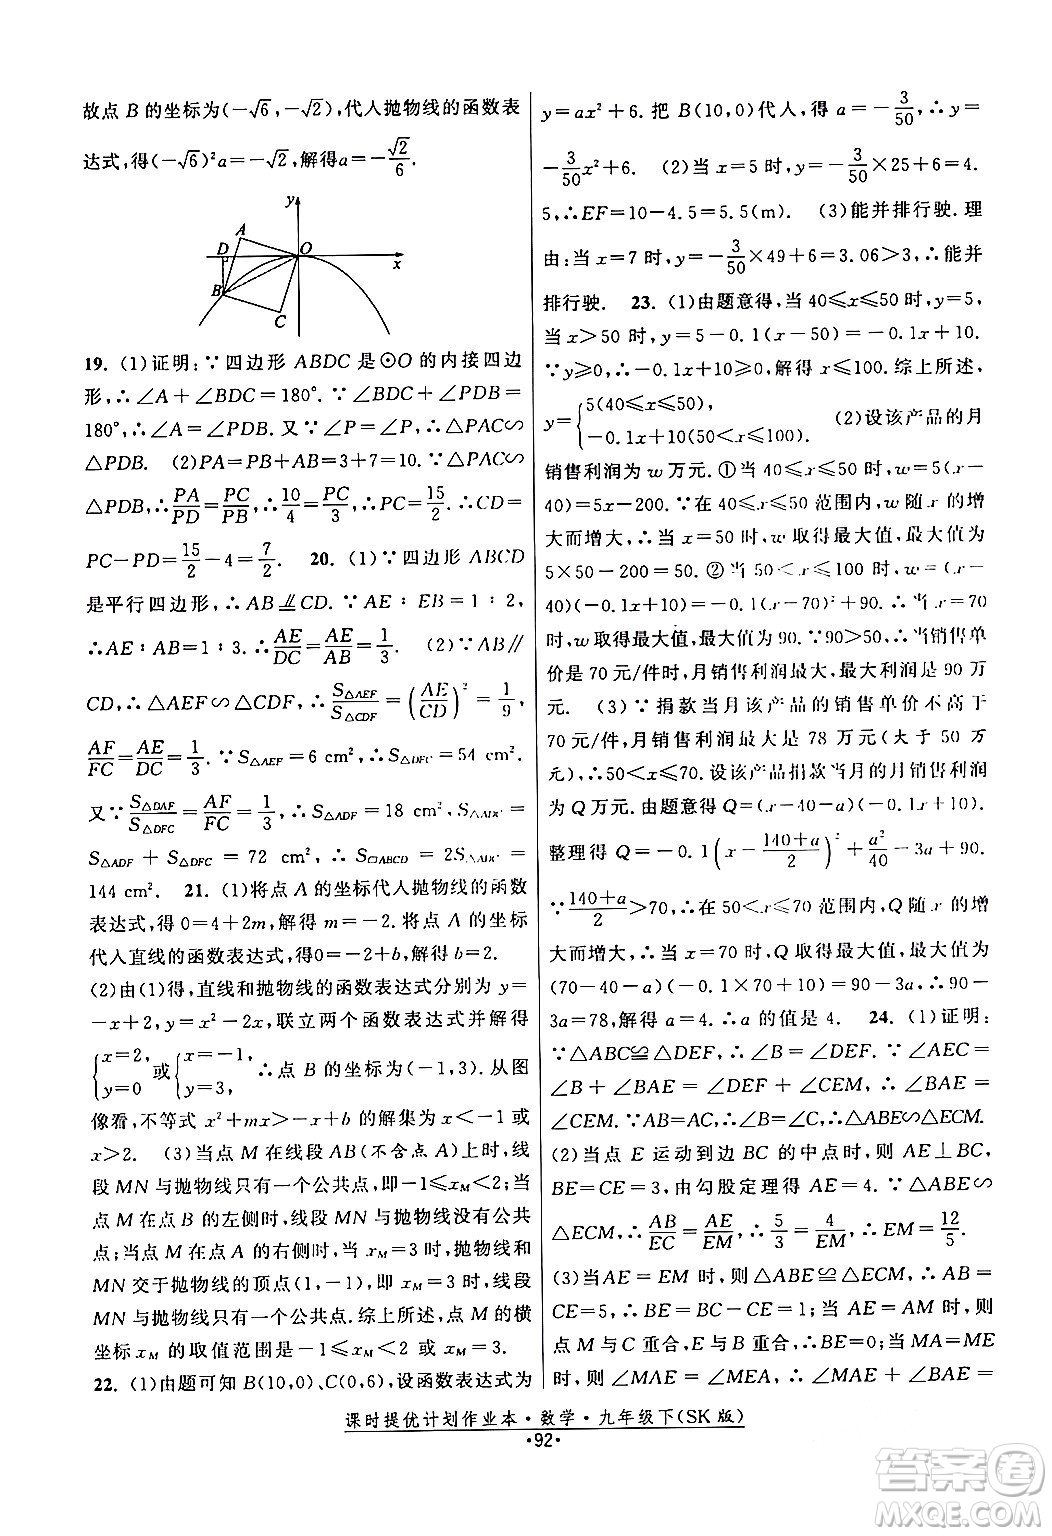 故点 B 的坐标为(-√6,-√2),代人抛物线的函数表
达式,得(-√6)²a=-√2,解得a=-√2/6.
y
D A O x
B C
19. (1)证明:∵四边形 ABDC 是⊙O 的内接四边
形,∴∠A+∠BDC=180°.∵∠BDC+∠PDB=
180°,∴∠A=∠PDB.又∵∠P=∠P,∴△PAC∽
△PDB. (2)PA=PB+AB=3+7=10.∵△PAC∽
△PDB,∴PA/PD=PC/PB,∴10/4=PC/3,∴PC=15/2.∴CD=
PC-PD=15/2-4=7/2. 20. (1)∵四边形 ABCD
是平行四边形,∴AB⫽CD.∵AE∶EB=1∶2,
∴AE∶AB=1∶3.∴AE/DC=AE/AB=1/3. (2)∵AB∥
CD,∴△AEF∽△CDF,∴S△AEF/S△CDF=(AE/CD)²=1/9,
AF/FC=AE/DC=1/3.∵S△AEF=6 cm²,∴S△DFC=54 cm².
又∵S△DAF/S△DFC=AF/FC=1/3,∴S△ADF=18 cm².∴
S△ADF+S△DFC=72 cm²,∴S▱ABCD=2S
144 cm². 21. (1)将点 A 的坐标代人抛物线的函数
表达式,得 0=4+2m,解得 m=-2.将点 A 的坐标
代人直线的函数表达式,得0=-2+b,解得 b=2.
(2)由(1)得,直线和抛物线的函数表达式分别为 y=
-x+2,y=x²-2x,联立两个函数表达式并解得
{x=2,y=0 或{x=-1,y=3,∴点 B 的坐标为(-1,3).从图
像看,不等式 x²+mx>-x+b 的解集为 x<-1 或
x>2. (3)当点 M 在线段 AB(不含点 A)上时,线
段 MN 与抛物线只有一个公共点,即-1≤xM<2;当
点 M 在点 B 的左侧时,线段 MN 与抛物线没有公共
点;当点 M 在点 A 的右侧时,当 xM=3 时,抛物线和
MN 交于抛物线的顶点(1,-1),即 xM=3 时,线段
MN 与抛物线只有一个公共点.综上所述,点 M 的横
坐标 xM 的取值范围是-1≤xM<2 或 xM=3.
22. (1)由题可知 B(10,0)、C(0,6),设函数表达式为
y=ax²+6.把 B(10,0)代人,得 a=-3/50,∴y=
-3/50x²+6. (2)当 x=5 时,y=-3/50×25+6=4.
5,∴EF=10-4.5=5.5(m). (3)能并排行驶.理
由:当 x=7 时,y=-3/50×49+6=3.06>3,∴能并
排行驶. 23. (1)由题意得,当 40≤x≤50 时,y=5,
当 x>50 时,y=5-0.1(x-50)=-0.1x+10.
∵y≥0,∴-0.1x+10≥0,∴x≤100.综上所述,
y={5(40≤x≤50),-0.1x+10(50<x≤100). (2)设该产品的月
销售利润为 w 万元.①当 40≤x≤50 时,w=5(x-
40)=5x-200.∵在 40≤x≤50 范围内,w 随 x 的增
大而增大,∴当 x=50 时,w 取得最大值,最大值为
5×50-200=50.②当 50<x≤100 时,w=(x-
40)(-0.1x+10)=-0.1(x-70)²+90.∴当 x=70
时,w 取得最大值,最大值为 90.∵90>50,∴当销售单
价是 70 元/件时,月销售利润最大,最大利润是 90 万
元. (3)∵捐款当月该产品的销售单价不高于
70 元/件,月销售利润最大是 78 万元(大于 50 万
元),∴50<x≤70.设该产品捐款当月的月销售利润
为 Q 万元.由题意得 Q=(x-40-a)(-0.1x+10),
整理得 Q=-0.1(x-(140+a)/2)²+a²/40-3a+90.
∵(140+a)/2>70,∴在 50<x≤70 范围内,Q 随 x 的增
大而增大,∴当 x=70 时,Q 取得最大值,最大值为
(70-40-a)(-0.1×70+10)=90-3a,∴90-
3a=78,解得 a=4.∴a 的值是 4. 24. (1)证明:
∵△ABC≌△DEF,∴∠B=∠DEF.∵∠AEC=
∠B+∠BAE=∠DEF+∠CEM,∴∠BAE=
∠CEM.∵AB=AC,∴∠B=∠C,∴△ABE∽△ECM.
(2)当点 E 运动到边 BC 的中点时,则 AE⊥BC,
BE=CE=3,由勾股定理得 AE=4.∵△ABE∽
△ECM,∴AB/EC=AE/EM,∴5/3=4/EM,∴EM=12/5.
(3)当AE=EM 时,则△ABE≌△ECM,∴AB=
CE=5,∴BE=BC-EC=1;当 AE=AM 时,则
点 M 与 C 重合,E 与 B 重合,∴BE=0;当 MA=ME
时,则∠MAE=∠MEA.∵∠MAE+∠BAE=
课时提优计划作业本·数学·九年级下(SK版)
·92·
答案圈
MXQE.COM